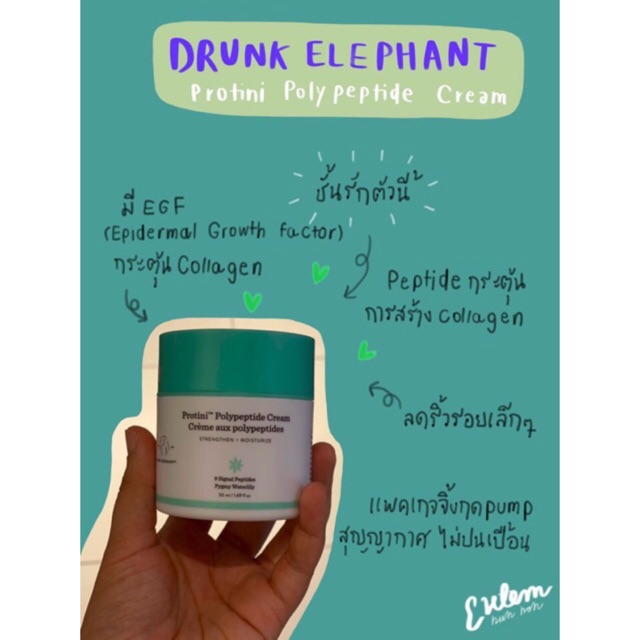 DRUNK ELEPHANT
Protini Polypeptide Cream
ชั้นรักตัวนี้
มี EGF
(Epidermal Growth Factor)
กระตุ้น Collagen
Peptide กระตุ้น
การสร้าง Collagen
Protini™ Polypeptide Cream
Crème aux polypeptides
STRENGTHEN + MOISTURIZE
9 Signal Peptides
Pygmy Waterlily
50 ml / 1.69 fl oz
ลดริ้วรอยเล็กๆ
แพคเกจจิ้งกดpump
สุญญากาศ ไม่ปนเปื้อน
Eulem